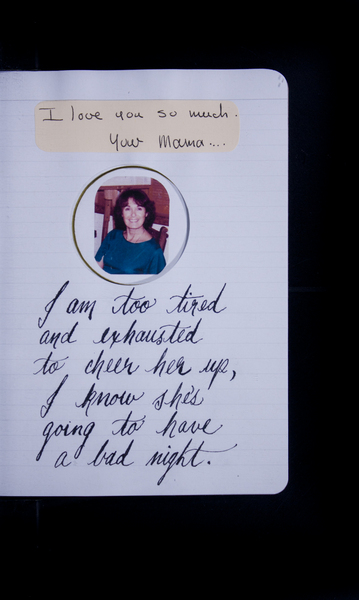 I love you so much.
Your Mama....
I am too tired
and exhausted
to cheer her up,
I know she's
going to have
a bad night.